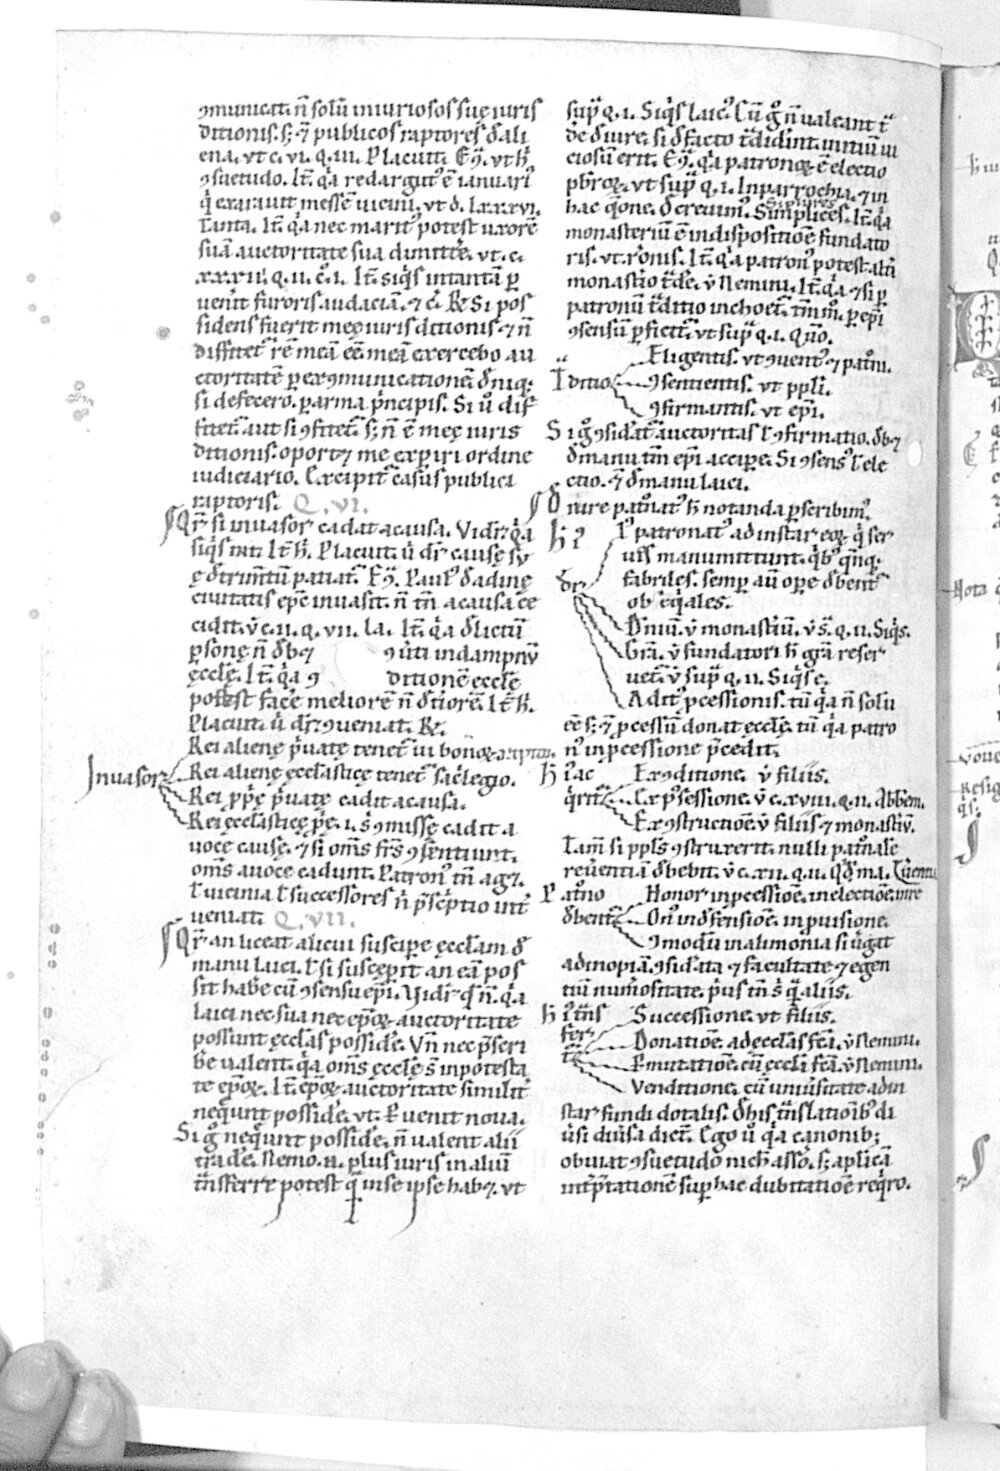 ꝯmunicat. n̄ solū iniuriosos suę iuris
ditionis. s; ⁊ publicos raptores đ ali
ena. ut c. vi. q. iii. Placuit. Eͣ. ut h̄
ꝯsuetudo. Itͣ. qͣ redarguit᷒ ē ianuari᷒
q̇ exarauit messē uicini. ut d. lxxxvi.
Tanta. Itͣ. qͣ nec marit᷒ potest uxorē
suā auctoritate sua dimittͤe. ut. c.
xxxiii. q. ii. c̊. i. Itͣ. siq̇s intantā ꝑ
uenit furoris audaciā. ⁊ c̊. R̄. Si pos
sidens fuerit meę iuris ditionis ⁊ n̄
diffitet᷑ rē meā eē. meā exercebo au
ctoritatē ꝑ exꝯmunicationē. đniq;
si defecero. ꝑ arma pͥncipis. Si ů dif
fitet᷑. aut si ꝯfitet᷑. s; n̄ ē meę iuris
ditionis. oportꝫ me exꝑiri ordine
iudiciario. Excipit᷑ casus publici
raptoris. Q. VI.
Qr̄ si inuasor cadat a causa. Vidr̄ qͣ
siq̇s int. Itͣ h̄. Placuit. ů dr̄ causę su
ę đtrim̄tū patiat᷑. Eͣ. Paul᷒ đ adinę
ciuitatis ep̄c inuasit. n̄ tn̄ a causa ce
cidit. ů c. ii. q. vii. la. Itͣ. qͣ đlictū
ꝑsonę n̄ đbꝫ ꝯuti in dampnū
ęccłę. Itͣ. qͣ ꝯ ditionē ęccłę
potest facͤe meliorē n̄ đtͥorē. Itͣ h̄.
Placuit. ů dr̄ ꝯueniat. R̄.
Rei alienę pͥuatę tenet᷑ ui bonoꝝ raptoꝝ.
Inuasor Rei alienę ęccłasticę tenet᷑ sacͥlegio.
Rei ꝓpͥę pͥuatę cadit a causa.
Rei ęccłasticę ꝓpͥę. i. s̓ ꝯmissę cadit a
uoce causę. ⁊ si om̄s fr̄s ꝯsentiunt.
om̄s a uoce cadunt. Patron᷒ tn̄ agꝫ.
ł uicinia ł successores n̄ pͥscͥptio int̓
ueniat. Q. VII.
Qr̄ an liceat alicui suscipͤe ęccłam đ
manu laici. ł si suscępit an eā pos
sit habͤe cū ꝯsensu ep̄i. Vidr̄ q̇ n̄. qͣ
laici nec sua nec ep̄oꝝ auctoritate
possunt ęccłas possidͤe. Vn̄ nec pͥscri
bͤe ualent. qͣ om̄s ęccłę s̓ in potesta
te ep̄oꝝ. Itͣ. ep̄oꝝ auctoritate similit̓
neq̇unt possidͤe. ut. Puenit noua.
Si g̊ neq̇unt possidͤe. n̄ ualent alii
tradͤe. Nemo. n. plus iuris in aliū
tͣnsferre potest qͣ̄ in se ipse habꝫ. ut
supͣ q. i. Siq̇s laic᷒. Cū g̊ n̄ ualeant tͣ
dͤe đ iure. si đ facto tͣdidͬint. initiū ui
ciosū erit. Eͣ. qͣ patronoꝝ ē electio
pbr̄oꝝ. ut supͣ q. i. In parrochia. ⁊ in
hac q̄one. đcreuim᷒. Si plures
Simplices. Itͣ. qͣ
monasteriū ē in dispositiōe fundato
ris. ut. rōnis. Itͣ. qͣ patron᷒ potest alt̓i
monastͬio tͣdͤe. ů Nemini. Itͣ. qͣ ⁊ si ꝑ
patronū tͣditio inchoet᷑. tn̄ ꝑ ep̄i
ꝯsensū ꝑficit᷑. ut supͣ q. i. Quō.
Eligentis. ut ꝯuent᷒ ⁊ patͦni.
Tͣditio ꝯsentientis. ut ppłi.
ꝯfirmantis. ut ep̄i.
Si g̊ ꝯsidͬat᷑ auctoritas ł ꝯfirmatio. đbꝫ
đ manu tm̄ ep̄i accipͤe. Si ꝯsens᷒ ł ele
ctio. ⁊ đ manu laici.
Đ iure patͦnat᷒ h̄ notanda ꝑscribim᷒.
I᷒ patronat᷒ ad instar eoꝝ q̇ ser
uos manumittunt. qͥb᷒ qͥnq;
fabriles. semꝑ aū oꝑe đbent᷑
obseq̇ales.
Dr̄ Dn̄iū. ů monastͬiū. ů s̓. q. ii. Siq̇s.
Gr̄a. ů fundatori h̄ gr̄a reser
uet᷑. ů supͣ q. ii. Siq̇s e.
Adit᷒ ꝓcessionis. tū qͣ n̄ solū
eē s; ⁊ ꝓcessū donat ęccłę. tū qͣ patro
n᷒ in ꝓcessione pͥcedit.
H̄ i᷒ ac Ex ꝯditione. ů filiis.
q̇rit᷑ Ex possessione. ů c. xviii. q. ii. Abbēm.
Ex ꝯstructiōe. ů filiis ⁊ monastͬiū.
Tam̄ si ppłs ꝯstruxerit. nulli patͦnałe
reuͬentiā đbebit. ů c. xii. q. ii. Qͥdā ma.
Patͦno Honor in ꝓcessiōe. in electiōe.
đbent᷑ On᷒ in đfensiōe. in ꝓuisione.
Imodū in alimonia si uͬgat
ad inopiā. ꝯsidͬata ⁊ facultate ⁊ egen
tiū numͬositate. pͥus tn̄ s̓ q̇ aliis.
H̄ i᷒ tͣns Successione. ut filiis.
fer Donatiōe. ad ecclas fcā. ů Nemini.
t᷑ Pmutatiōe. cū ęccłi fcā. ů Nemini.
Venditione. cū uniuͬsitate ad in
star fundi dotalis. đ his tͣnslationib᷒ di
uͬsi diuͬsa dicūt. Ego ů qͣ canonib;
obuiat ꝯsuetudo nich̄ asso. s; aplicā
int̓pͥtationē suꝑ hac dubitatiōe req̇ro.